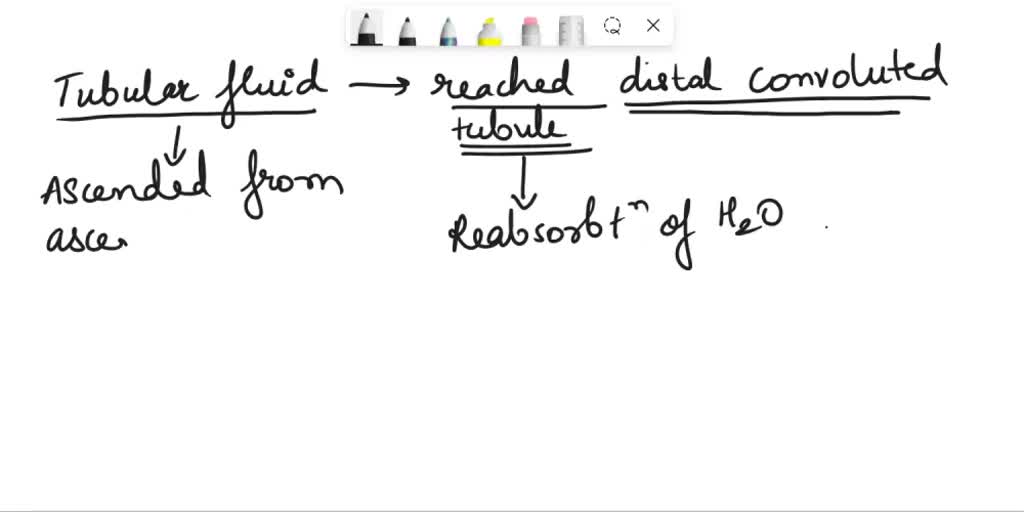 Tubular fluid → reached distal convoluted
tubule
Ascended from
asce
Reabsorbtⁿ of H₂O